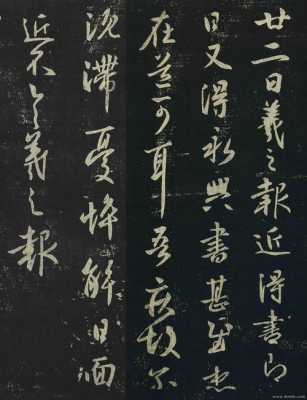 廿二日羲之報近得書即
日又得永興書甚慰想
在道可耳吾疾故尔
沈滯憂悴解日面
近不具羲之報